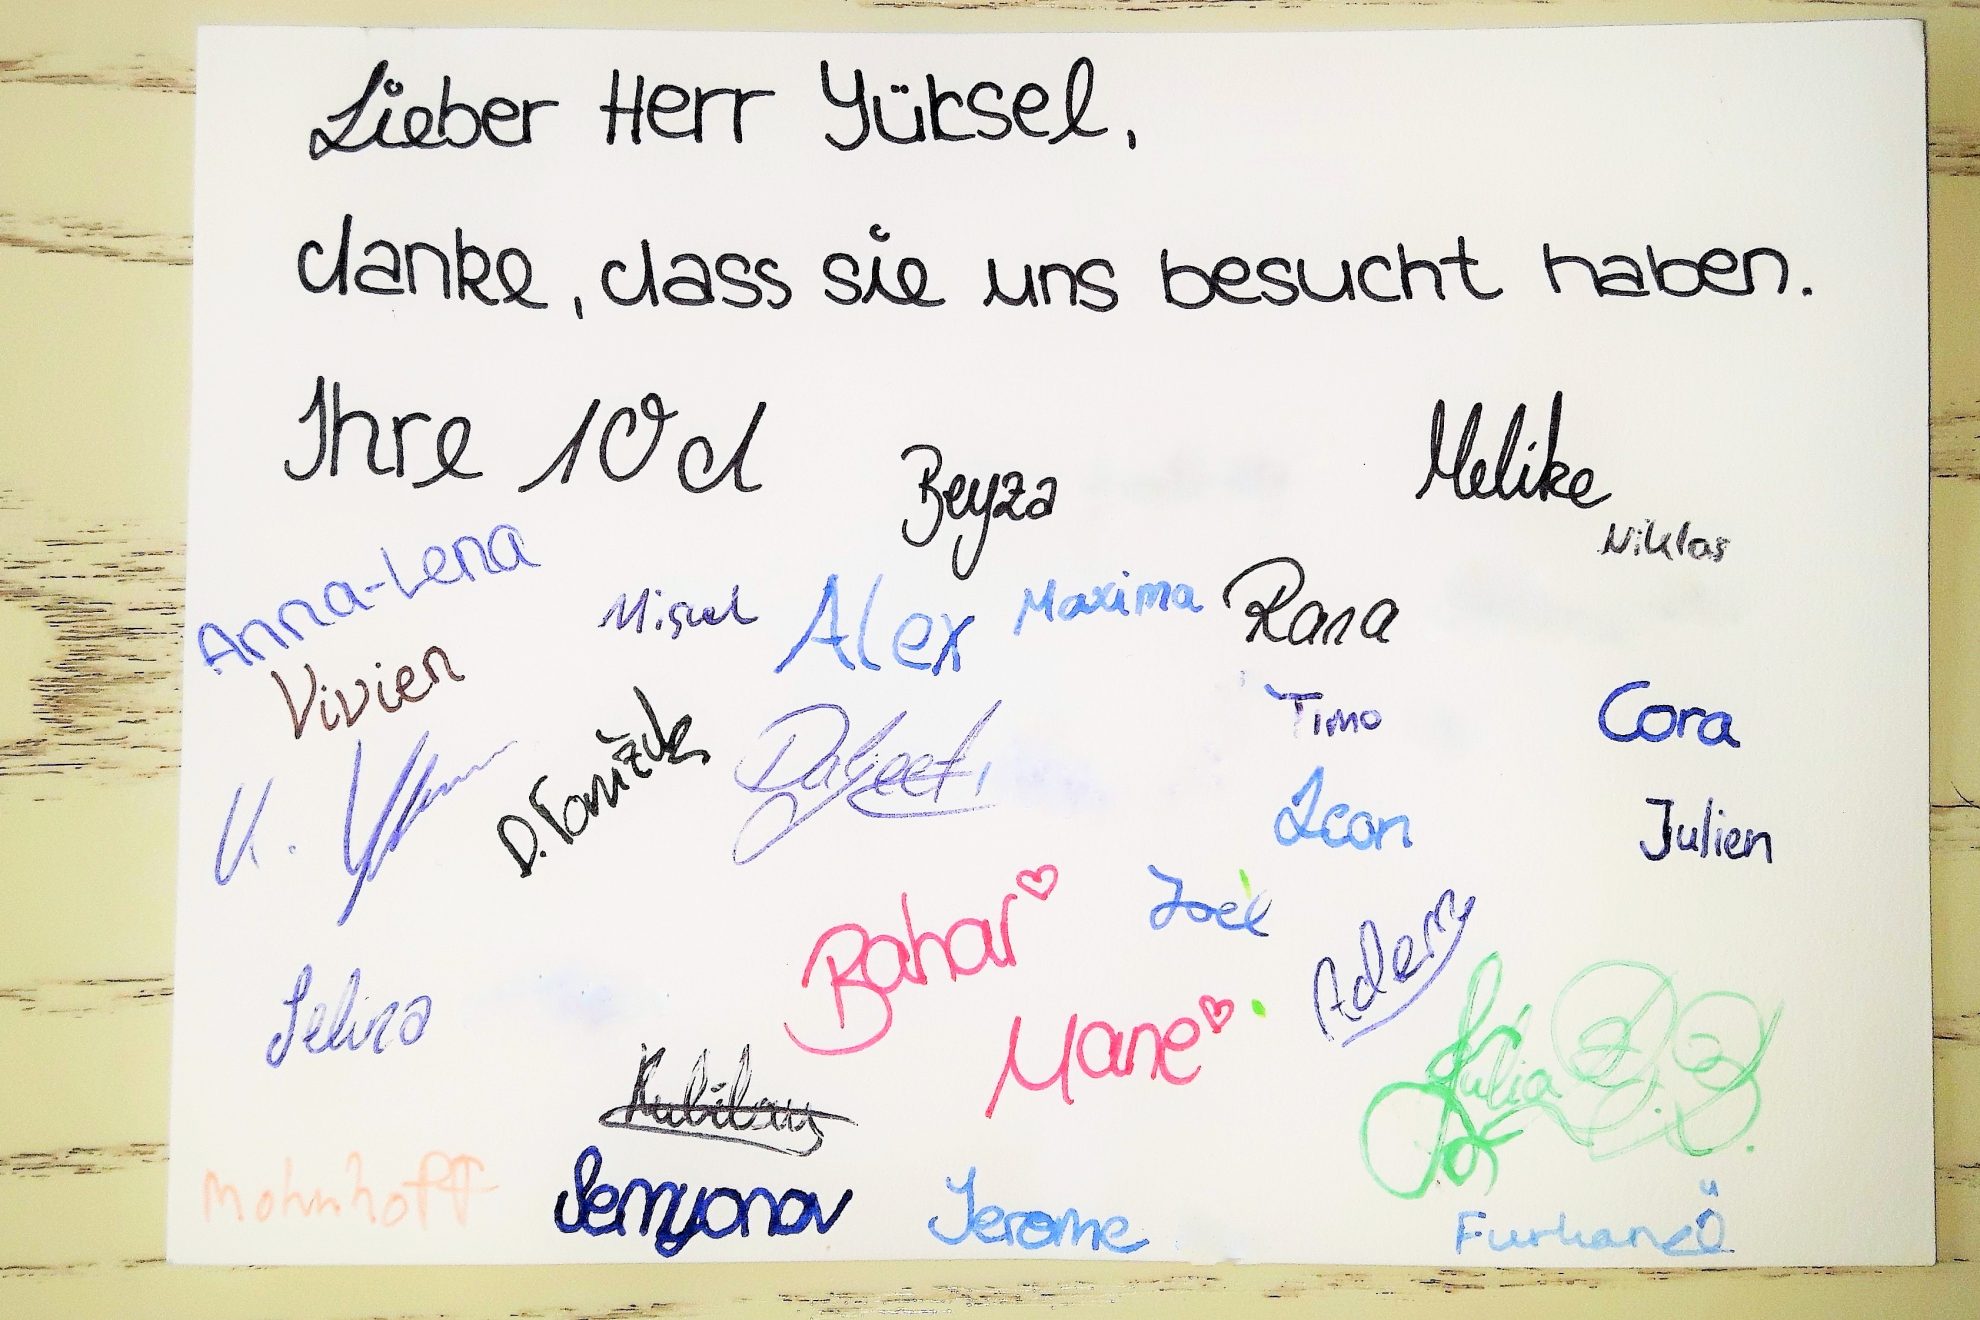 Lieber Herr Yüksel,
danke, dass sie uns besucht haben.
Ihre 10d
Beyza
Melike
Niklas
Anna-Lena
Miguel
Alex
Maxima
Rana
Vivien
Timo
Cora
Leon
Julien
Bahar
Zoé
Adem
Selina
Mane
Julia
Kubilay
Mohnhoff
Semyonov
Jerome
Furkan